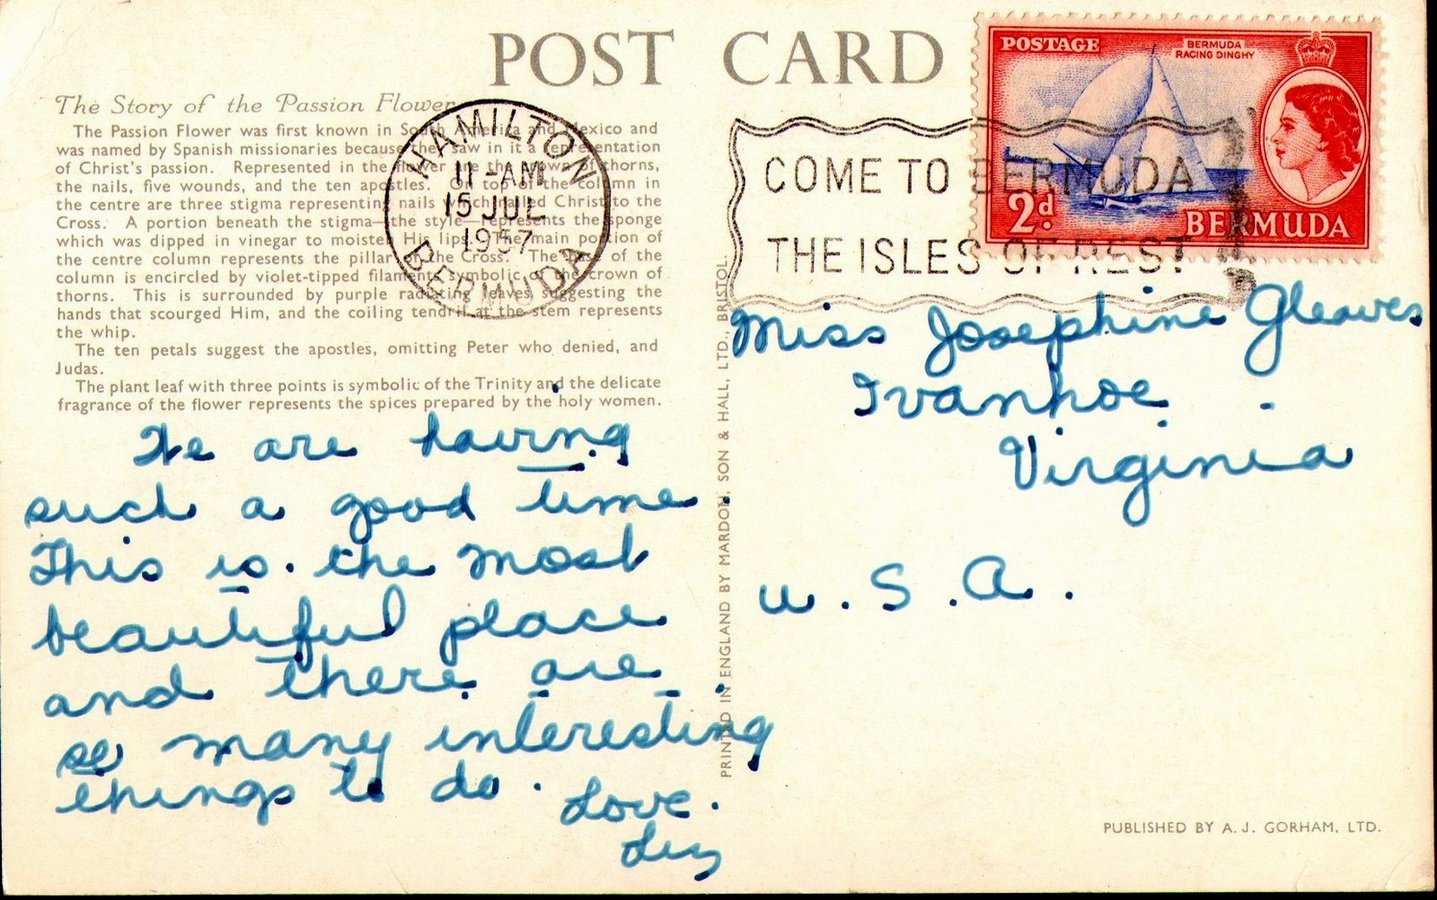 POST CARD
The Story of the Passion Flower
The Passion Flower was first known in South America and Mexico and
was named by Spanish missionaries because they saw in it a representation
of Christ's passion. Represented in the flower are the crown of thorns,
the nails, five wounds, and the ten apostles. On top of the column in
the centre are three stigma representing nails which nailed Christ to the
Cross. A portion beneath the stigma—the style—represents the sponge
which was dipped in vinegar to moisten His lips. The main portion of
the centre column represents the pillar of the Cross. The base of the
column is encircled by violet-tipped filaments symbolic of the crown of
thorns. This is surrounded by purple radiating leaves suggesting the
hands that scourged Him, and the coiling tendril at the stem represents
the whip.
The ten petals suggest the apostles, omitting Peter who denied, and
Judas.
The plant leaf with three points is symbolic of the Trinity and the delicate
fragrance of the flower represents the spices prepared by the holy women.
HAMILTON
11-AM
15 JUL
1957
BERMUDA
COME TO BERMUDA
THE ISLES OF REST
POSTAGE
BERMUDA
RACING DINGHY
2d
BERMUDA
We are having
such a good time.
This is the most
beautiful place
and there are
so many interesting
things to do.
Love.
Liz
PRINTED IN ENGLAND BY MARDON, SON & HALL, LTD., BRISTOL.
Miss Josephine Gleaves
Ivanhoe
Virginia
U.S.A.
PUBLISHED BY A. J. GORHAM, LTD.